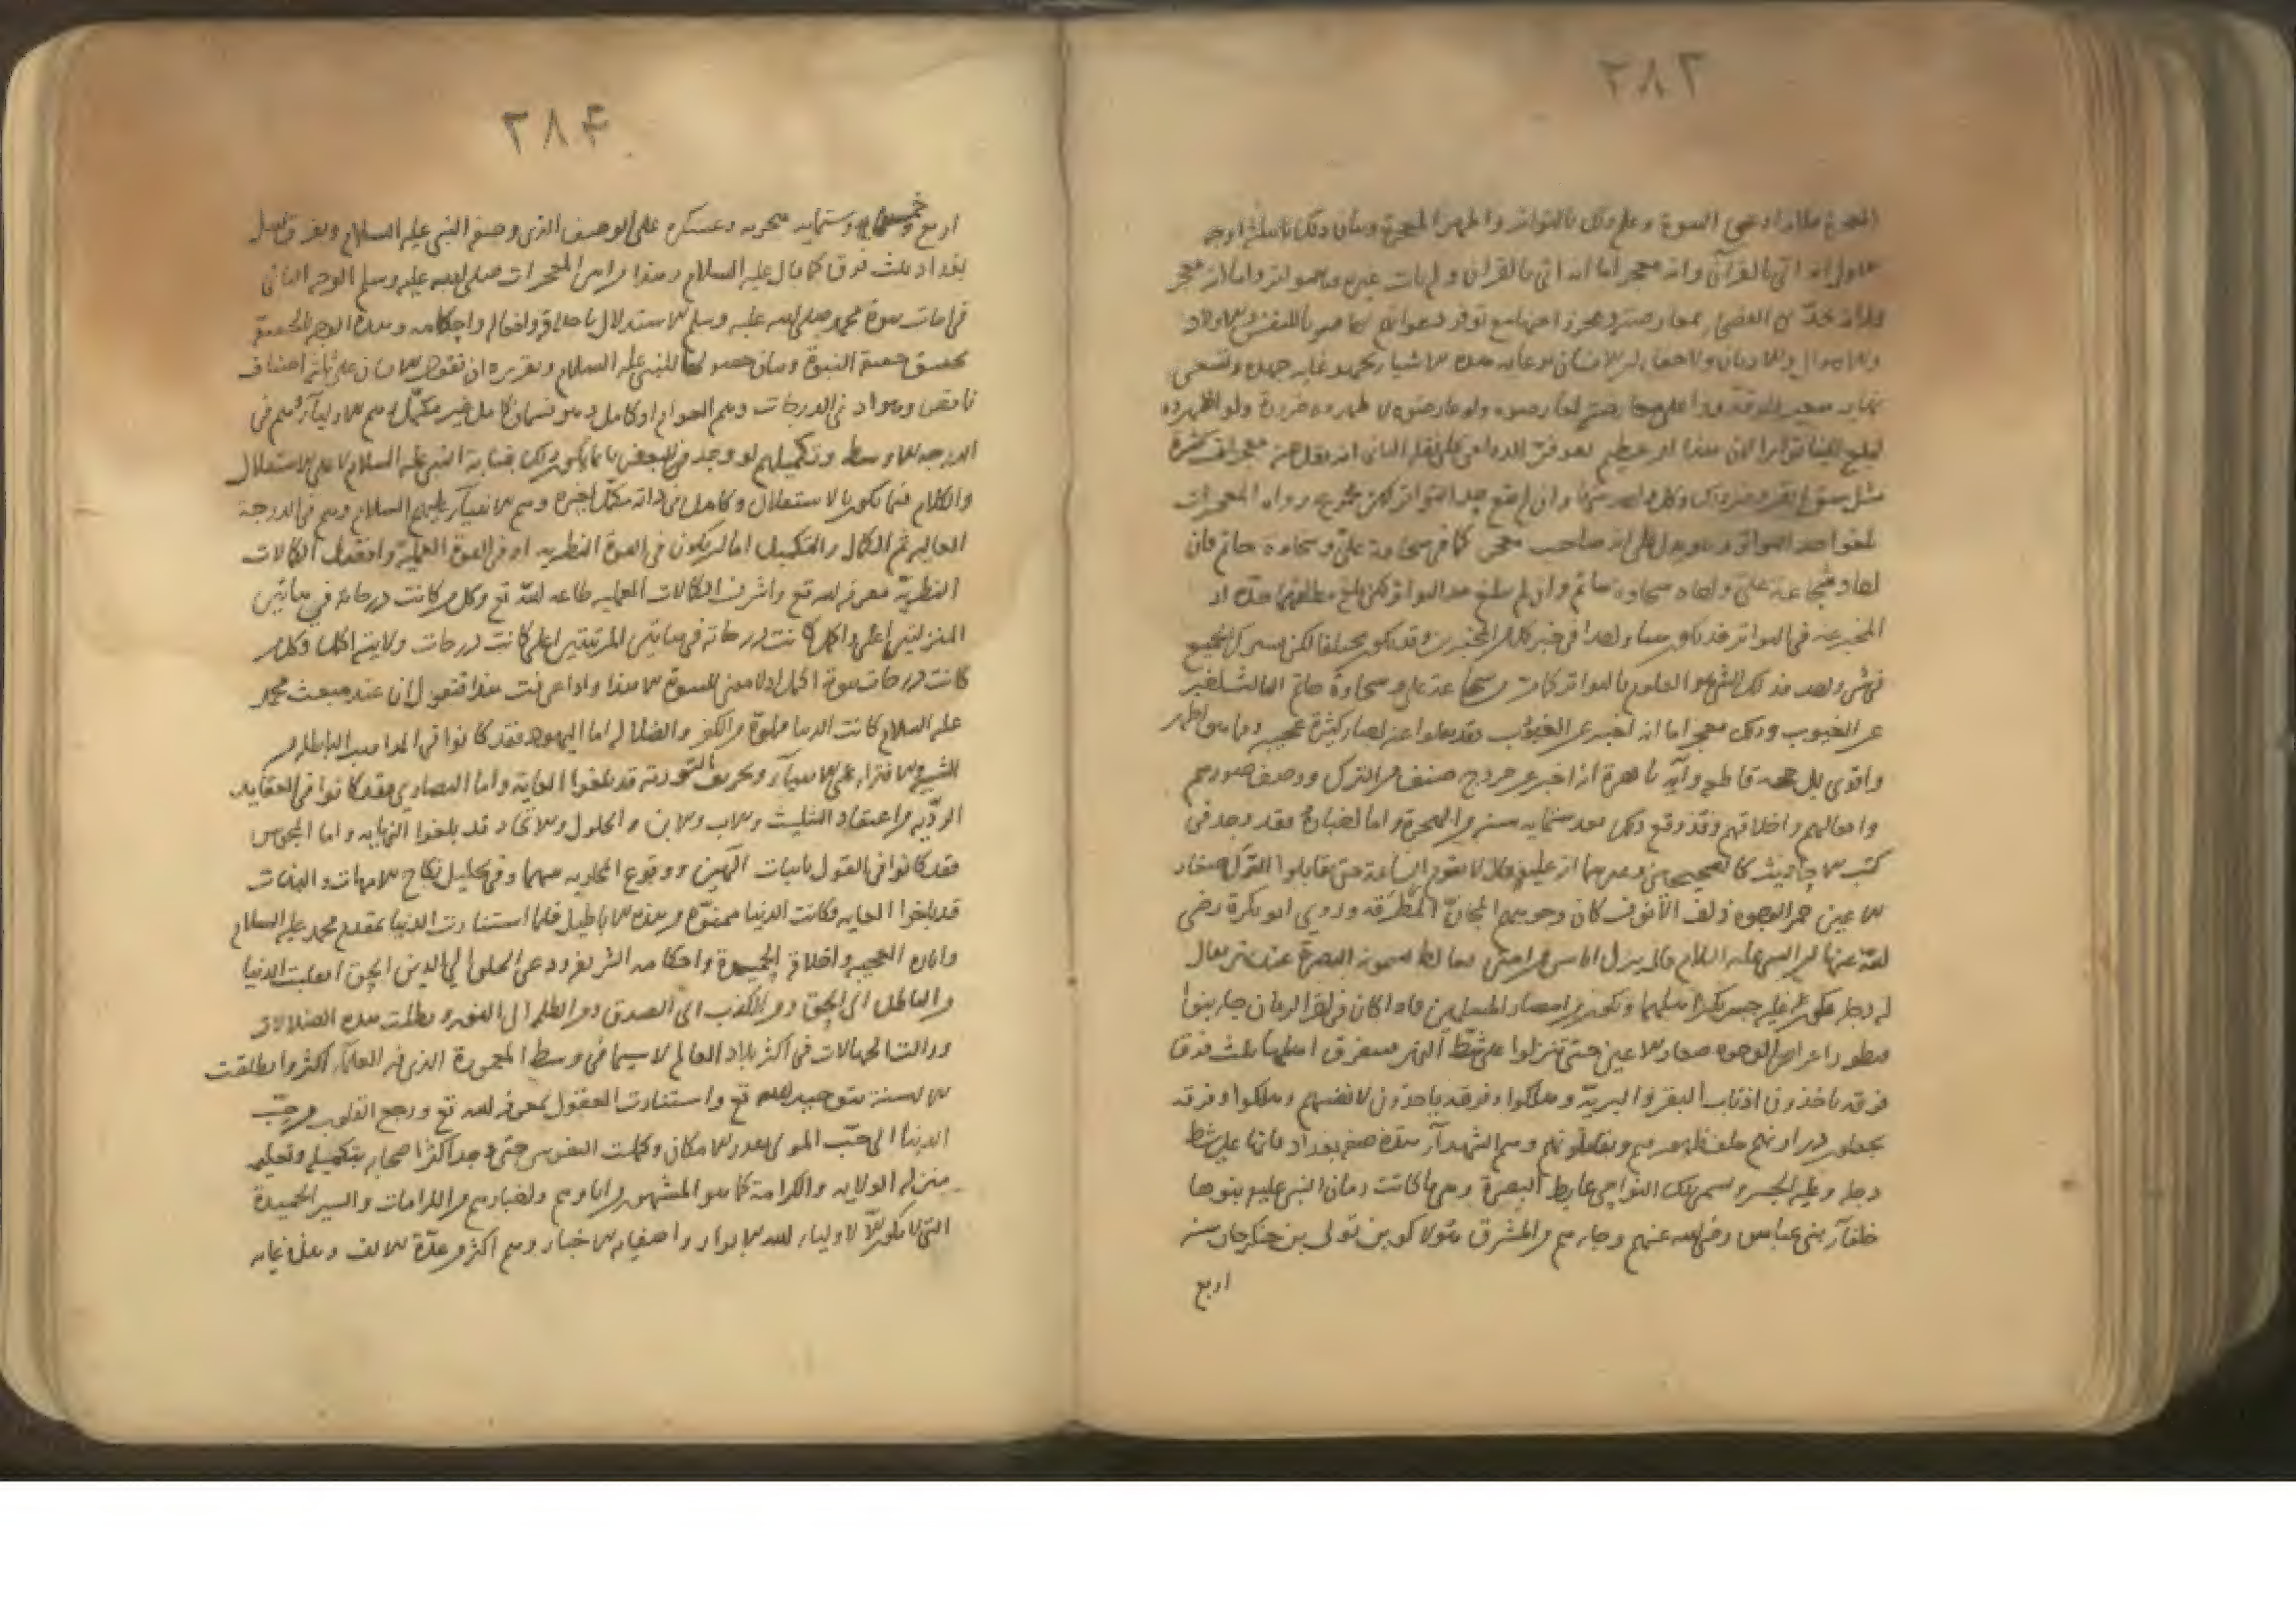 ٢٨٣
المعجزة فلانه ادعى النبوة وعلم ذلك بالتواتر واظهر المعجزة وبيان ذلك بثلثة اوجه
الاول انه اتى بالقرآن وانه معجز اما انه اتى بالقران ولم يات غيره فبالتواتر واما انه معجز
لبلغ الينا تواترا لان هذا امر عظيم لتوفر الدواعى على نقله الثانى انه نقل عنه معجزات كثيرة
بلغوا حد التواتر وهو يدل على انه صاحب معجز كما فى شجاعة على وسخاوة حاتم فان
احاد شجاعة على واحاد سخاوة حاتم وان لم يبلغ حد التواتر لكن بلغ مطلقهما حده اذ
المخبر عنه فى التواتر قد يكون شيئا واحدا فى خبر كل من المخبرين وقد يكون مختلفا لكن يشترك الجميع
فى شئ واحد فذلك الشئ هو المعلوم بالتواتر كما فى شجاعة على وسخاوة حاتم الثالث اخبر
عن الغيوب وذلك معجز اما انه اخبر عن الغيوب فقد نقلوا عنه اخبار كثيرة عجيبة وما هو اظهر
واقوى بل حجة قاطعة وآية باهرة انه اخبر عن خروج صنف من الترك ووصف صورهم
وافعالهم واخلاقهم وقد وقع ذلك بعد ستمايه سنة من الهجرة واما اخباره فقد وجد فى
كتب الاحاديث كالصحيحين وغيرهما انه عليه قال لا تقوم الساعة حتى تقاتلوا الترك صغار
الاعين حمر الوجوه ذلف الانوف كان وجوههم المجان المطرقة وروى ابو بكرة رضى
الله عنه ان النبى عليه السلام قال ينزل اناس من امتى بغائط يسمونه البصرة عند نهر يقال
له دجلة يكون عليه جسر يكثر اهلها ويكون من امصار المسلمين فاذا كان فى اخر الزمان جاء بنوا
قنطورا عراض الوجوه صغار الاعين حتى ينزلوا على شط النهر فيتفرق اهلها ثلث فرق
فرقة ياخذون اذناب البقر والبرية وهلكوا وفرقة ياخذون لانفسهم وهلكوا وفرقة
يجعلون ذراريهم خلف ظهورهم ويقاتلونهم وهم الشهدآء وهذه صفة بغداد فانها على شط
دجلة وعليه الجسر ويسمى تلك النواحى غايط البصرة وهى ما كانت زمان النبى عليه بنوها
خلفآء بنى عباس رضى الله عنهم وجاءهم من المشرق هولاكو بن تولى بن جنكزخان سنة
اربع
٢٨۴
اربع وخمسين وستمايه بحربه وعسكره على الوصف الذى وصفه النبى عليه السلام وتفرق اهل
بغداد ثلث فرق كما قال عليه السلام وهذا من اسنى المعجزات صلى الله عليه وسلم الوجه الثانى
فى اثبات نبوة محمد صلى الله عليه وسلم الاستدلال باخلاقه وافعاله واحكامه وهذه الوجه لتحقيق
تحقيق حقيقة النبوة وبيان حصولها للنبى عليه السلام وتقريره ان نقول الانسان على ثلثة اصناف
ناقص وهو ادنى الدرجات وهم العوام او كامل وهو قسمان كامل غير مكمل وهم الاوليآء وهم فى
الدرجة الاوسط وتكميلهم لو وجد فى البعض فانما يكون ذلك بمتابعة النبى عليه السلام لا على الاستقلال
والكلام فيما يكون بالاستقلال وكامل فى ذاته مكمل لغيره وهم الانبيآء عليهم السلام وهم فى الدرجة
العاليه ثم الكمال والتكميل اما ان يكون فى القوة النظرية او فى القوة العملية وافضل الكمالات
النظرية معرفة الله تع واشرف الكمالات العملية طاعة الله تع وكل من كانت درجاته فى هاتين
المنزلتين اعلى واكمل كانت درجاته فى هاتين المرتبتين اعلى كانت درجات ولايته اكمل وكل من
كانت درجات نبوته اكمل اذ لا معنى للنبوة الا هذا واذا عرفت هذا فنقول ان عند مبعث محمد
عليه السلام كانت الدنيا مملوة من الكفر والضلالة اما اليهود فقد كانوا فى المذاهب الباطلة من
التشبيه والافتراء على الانبيآء وتحريف التورية قد بلغوا الغاية واما النصارى فقد كانوا فى العقايد
الردية من اعتقاد التثليث والاب والابن والحلول والاتحاد قد بلغوا النهاية واما المجوس
فقد كانوا فى القول باثبات الهين ووقوع المحاربة بينهما وفى تحليل نكاح الامهات والبنات
قد بلغوا الغاية وكانت الدنيا مملوة من هذه الاباطيل فلما استنارت الدنيا بمقدم محمد عليه السلام
واثاره العجيبه واخلاقه الحميدة واحكامه الشريفة ودعى الخلق الى الدين الحق انقلبت الدنيا
من الباطل الى الحق ومن الكذب الى الصدق ومن الظلمة الى النور وبطلت هذه الضلالات
وزالت الجهالات فى اكثر بلاد العالم لا سيما فى وسط المعمورة الذى فيه العلمآء اكثر وانطلقت
الالسنة بتوحيد الله تع واستنارت العقول بمعرفة الله تع ورجع القلوب من حب
الدنيا الى حب المولى بقدر الامكان وكملت النفوس حتى وجد اكثر اصحابه بتكميله وتعليمه
منزلة الولاية والكرامة كما هو المشهور من اثارهم واخبارهم من الكرامات والسير الحميدة
التى لا يكون الا لاوليآء الله الابرار واصفيائه الاخيار وهم اكثر من عدة الالف